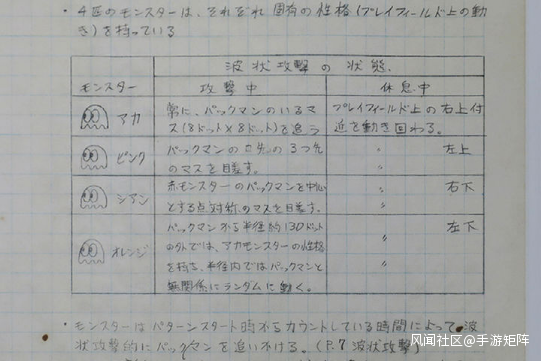 ・4匹のモンスターは、それぞれ固有の性格(プレイフィールド上の動
き)を持っている
波状攻撃の状態
モンスター
攻撃中
休息中
アカ
常に、パックマンのいるマ
ス(8ドット×8ドット)を追う
プレイフィールド上の右上付
近を動き回わる。
ピンク
パックマンの口先の3つ先
のマスを目差す。
〃 左上
シアン
赤モンスターのパックマンを中心
とする点対称のマスを目差す。
〃 右下
オレンジ
パックマンから半径約130ドット
の外では、アカモンスターの性格
を持ち、半径内ではパックマンと
無関係にランダムに動く。
〃 左下
・モンスターはパターンスタート時からカウントしている時間によって、波
状攻撃的にパックマンを追い
る。(P.7 波状攻撃)
风闻社区@手游矩阵